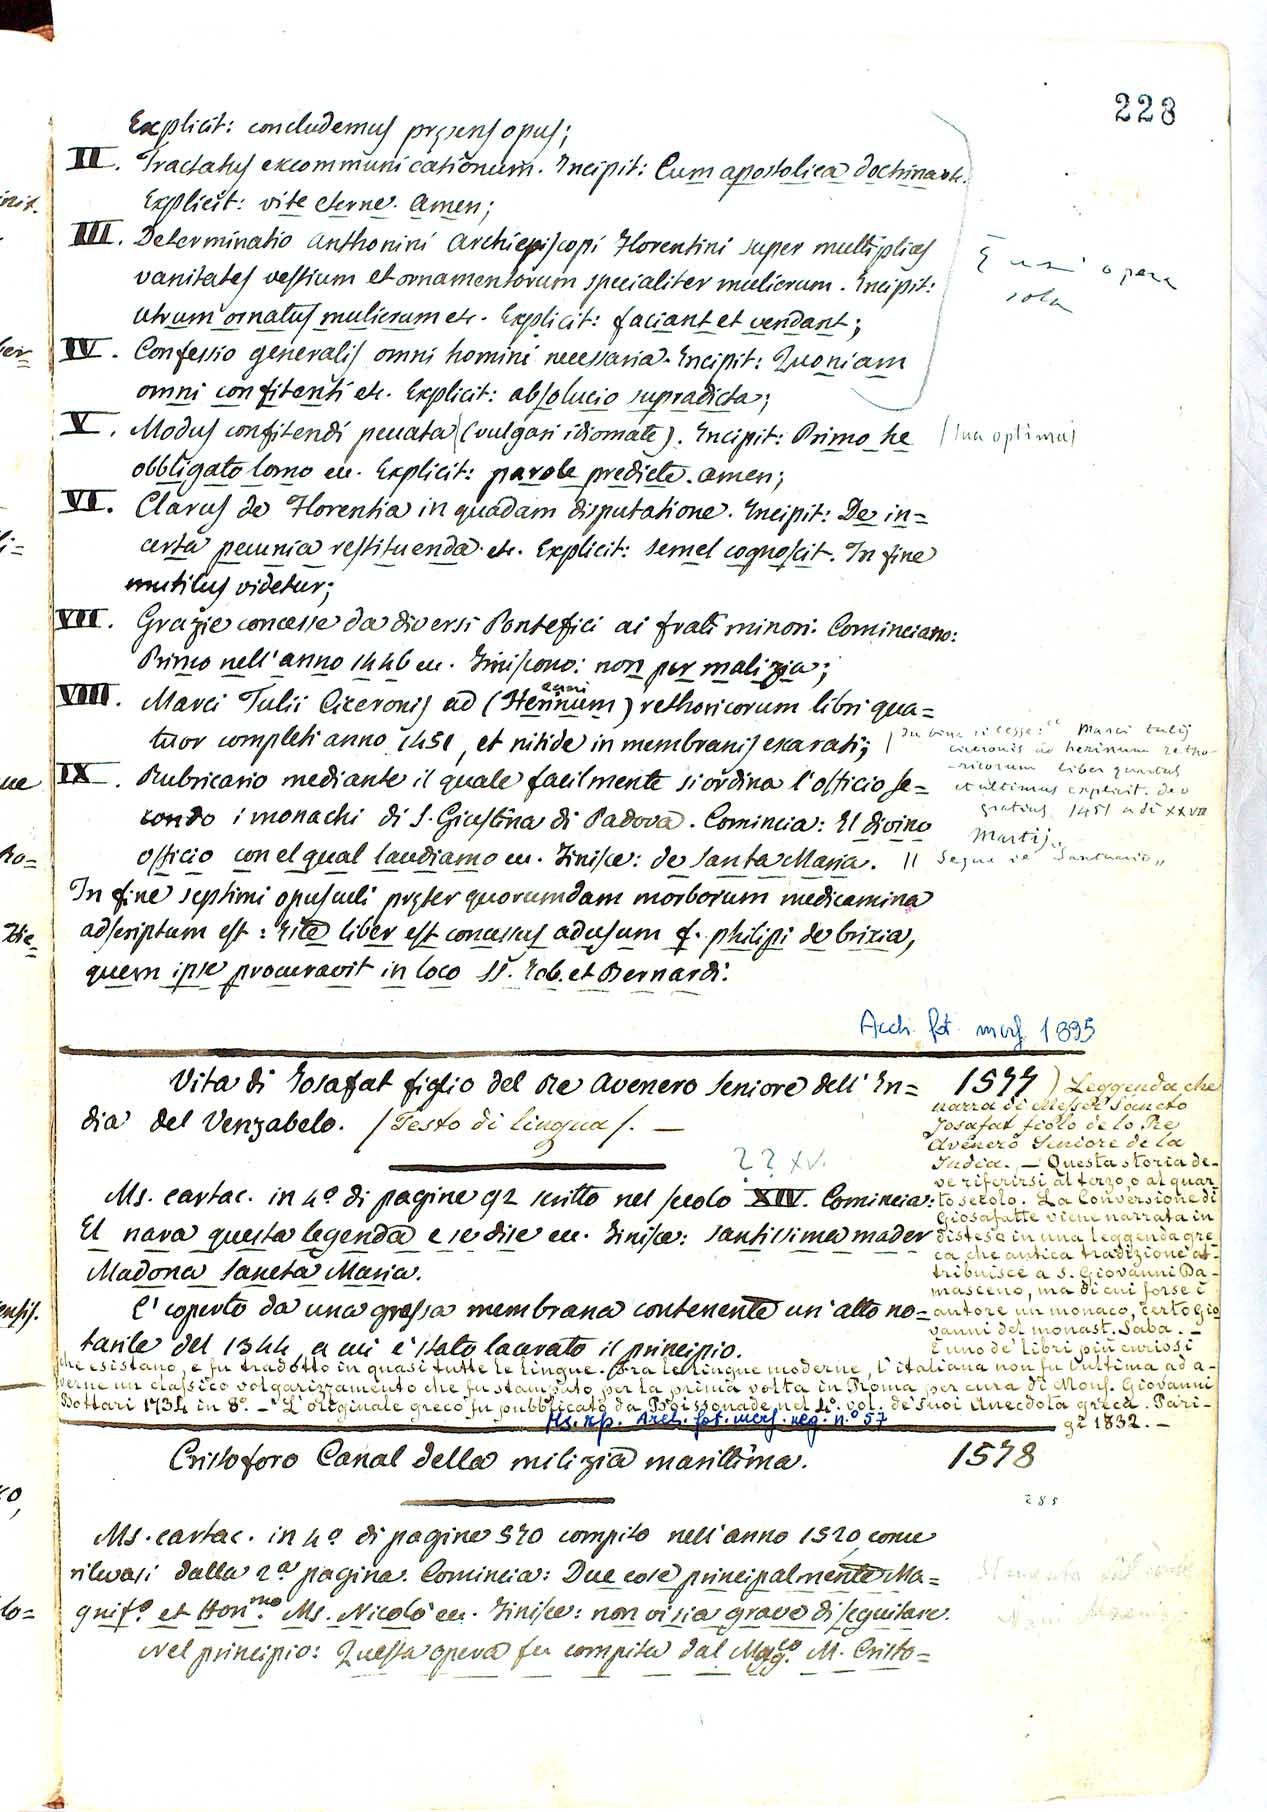 223
Explicit: concludemus pręsens opus;
II. Tractatus excommunicationum. Incipit: Cum apostolica doctrina etc.
Explicit: vite eterne. amen;
III. Determinatio Anthonini Archiepiscopi Florentini super multiplices
vanitates vestium et ornamentorum specialiter mulierum. Incipit:
utrum ornatus mulierum etc. Explicit: faciant et vendant;
IV. Confessio generalis omni homini necessaria. Incipit: Quoniam
omni confitenti etc. Explicit: absolucio supradicta;
opera
sola
V. Modus confitendi peccata (vulgari idiomate). Incipit: Primo he
obbligato lomo ec. Explicit: parole predicte. amen;
VI. Clarus de Florentia in quadam disputatione. Incipit: De in=
certa pecunia restituenda etc. Explicit: semel cognoscit. In fine
mutilus videtur;
VII. Grazie concesse da diversi Pontefici ai frati minori. Cominciano:
Primo nell'anno 1446 ec. Finiscono: non per malizia;
VIII. Marci Tulii Ciceronis ad (Herinum) rethoricorum libri qua=
enni
tuor completi anno 1451, et nitide in membranis exarati;
Marci tulij
ciceronis ad herinum retho-
ricorum liber quartus
et ultimus explicit. deo
gratias 1451 a dì XXVII
Martij.
IX. Rubricario mediante il quale facilmente si ordina l'officio se=
condo i monachi di S. Giustina di Padova. Comincia: El divino
officio con el qual laudiamo ec. Finisce: de santa Maria. ||
Segue il Santuario"
In fine septimi opusculi pręter quorumdam morborum medicamina
adscriptum est: Iste liber est concessus ad usum f. philipi de brixia,
quem ipse procuravit in loco SS. Iob. et Bernardi.
Arch. fot. marc. 1895
Vita di Iosafat figlio del Re Avenero Seniore dell'In=
dia del Venzabelo. /Testo di lingua/. —
1577
) Leggenda che
narra di Messer Sancto
Josafat fiolo de lo Re
Avenero Seniore de la
India. — Questa storia de-
ve riferirsi al terzo, o al quar-
to secolo. La Conversione di
Giosafatte viene narrata in
distesa in una leggenda gre-
ca che antica tradizione at-
tribuisce a S. Giovanni Da-
masceno, ma di cui forse è
autore un monaco, certo Gio
vanni del monast. Saba. —
È uno de' libri più curiosi
che esistano, e fu tradotto in quasi tutte le lingue. Fra le lingue moderne, l'italiana non fu l'ultima ad a-
verne un classico volgarizzamento che fu stampato per la prima volta in Roma per cura di Mons. Giovanni
Bottari 1734 in 8°. — L'originale greco fu pubblicato da Boissonade nel 4° vol. de' suoi Anecdota græca. Pari-
gi 1832. —
?? XV.
Ms. cartac. in 4° di pagine 92 scritto nel secolo XIV. Comincia:
El nara questa legenda e se dise ec. Finisce: santissima mader
Madona Sancta Maria.
E' coperto da una grossa membrana contenente un'atto no=
tarile del 1344, a cui è stato lacerato il principio.
Ms. rip. Arch. fot. marc. neg. n° 57
Cristoforo Canal della milizia marittima.
1578
285
Ms. cartac. in 4° di pagine 370 compito nell'anno 1520, come
rilevasi dalla 2a pagina. Comincia: Due cose principalmente Ma=
gnif.° et Hon.mo Ms. Nicolò ec. Finisce: non vi sia grave di seguitare.
Nel principio: Questa opera fu compita dal Mag.co M. Cristo=